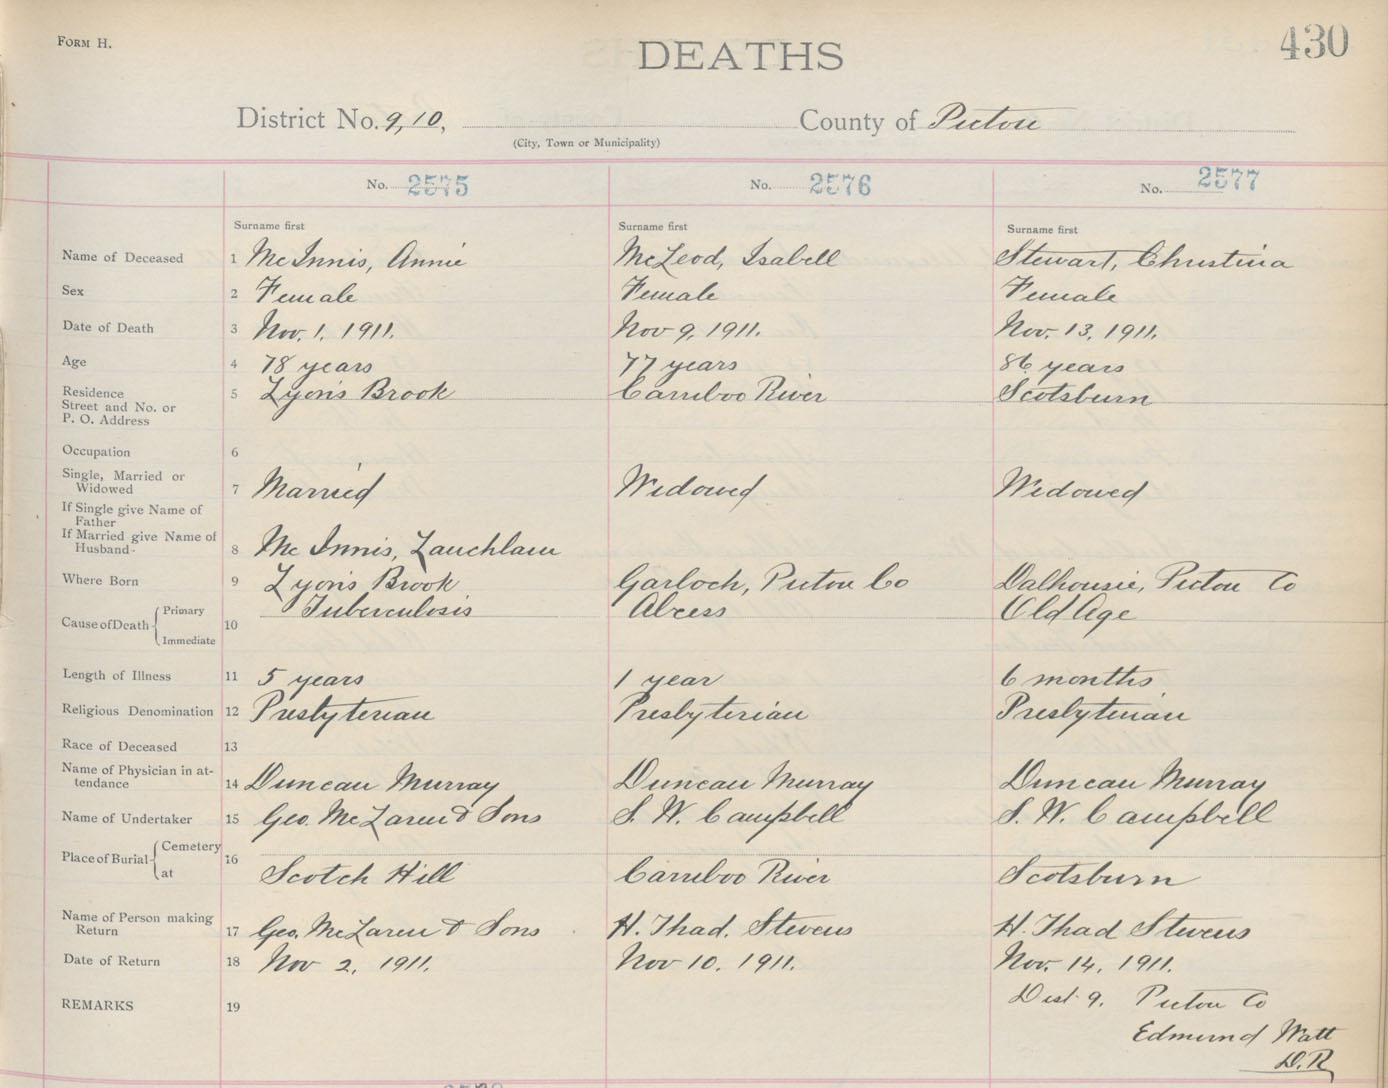 FORM H.
DEATHS
430
District No. 9, 10, County of Pictou
(City, Town or Municipality)
No. 2575 No. 2576 No. 2577
Surname first Surname first Surname first
Name of Deceased 1 McInnis, Annie McLeod, Isabell Stewart, Christina
Sex 2 Female Female Female
Date of Death 3 Nov. 1. 1911. Nov 9, 1911. Nov. 13, 1911.
Age 4 78 years 77 years 86 years
Residence
Street and No. or
P. O. Address
5 Lyons Brook Carriboo River Scotsburn
Occupation 6
Single, Married or
Widowed 7 Married Widowed Widowed
If Single give Name of
Father
If Married give Name of
Husband- 8 Mc Innis, Lauchlan
Where Born 9 Lyons Brook Garloch, Pictou Co Dalhousie, Pictou Co
Cause of Death Primary 10 Tuberculosis Abcess Old Age
Immediate
Length of Illness 11 5 years 1 year 6 months
Religious Denomination 12 Presbyterian Presbyterian Presbyterian
Race of Deceased 13
Name of Physician in at-
tendance 14 Duncan Murray Duncan Murray Duncan Murray
Name of Undertaker 15 Geo. McLaren & Sons S. W. Campbell S. W. Campbell
Place of Burial Cemetery 16
at Scotch Hill Carriboo River Scotsburn
Name of Person making
Return 17 Geo. McLaren & Sons H. Thad. Stevens H. Thad Stevens
Date of Return 18 Nov 2, 1911. Nov 10. 1911. Nov. 14, 1911.
REMARKS 19 Dist 9. Pictou Co
Edmund Watt
D.R